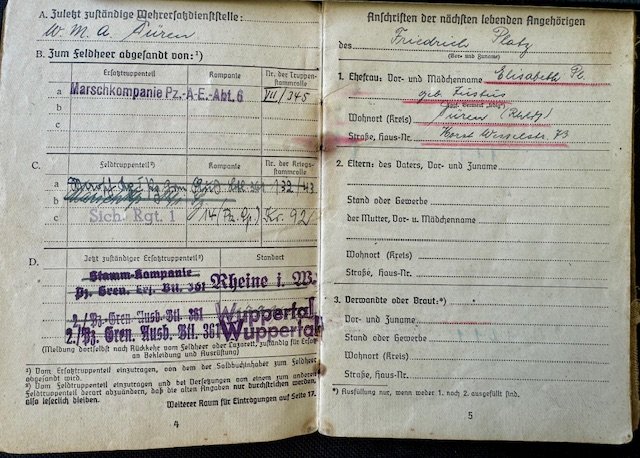 A. Zuletzt zuständige Wehrersatzdienststelle:
W. M. A. Düren
B. Zum Feldheer abgesandt von:¹)
Ersatztruppenteil
Kompanie
Nr. der Truppenstammrolle
a
Marschkompanie Pz.-A-E.-Abt. 6
VII/345
b
c
C.
Feldtruppenteil²)
Kompanie
Nr. der Kriegsstammrolle
a
132/43
b
c
Sich. Rgt. 1
14 (Pz. Jg.)
Kr. 92/
D.
Jetzt zuständiger Ersatztruppenteil³)
Standort
Stamm-Kompanie
Pz. Gren. Ers. Btl. 361
Rheine i. W.
2./Pz.-Gren. Ausb. Btl. 361
Wuppertal
2./Pz. Gren. Ausb. Btl. 361
Wuppertal
(Meldung dortselbst nach Rückkehr vom Feldheer oder Lazarett, zuständig für Ersatz
an Bekleidung und Ausrüstung)
¹) Vom Ersatztruppenteil einzutragen, von dem der Soldbuchinhaber zum Feldheer
abgesandt wird.
²) Vom Feldtruppenteil einzutragen und bei Versetzungen von einem zum anderen
Feldtruppenteil derart abzuändern, daß die alten Angaben nur durchstrichen werden,
also leserlich bleiben.
Weiterer Raum für Eintragungen auf Seite 17.
4
Anschriften der nächsten lebenden Angehörigen
des Friedrich Platz
(Vor- und Zuname)
1. Ehefrau: Vor- und Mädchenname Elisabeth Pl.
geb.
Wohnort (Kreis) Düren (Rhld)
Straße, Haus-Nr. Horst Wesselstr. 73
2. Eltern: des Vaters, Vor- und Zuname
Stand oder Gewerbe
der Mutter, Vor- u. Mädchenname
Wohnort (Kreis)
Straße, Haus-Nr.
3. Verwandte oder Braut:*)
Vor- und Zuname
Stand oder Gewerbe
Wohnort (Kreis)
Straße, Haus-Nr.
*) Ausfüllung nur, wenn weder 1. noch 2. ausgefüllt sind.
5